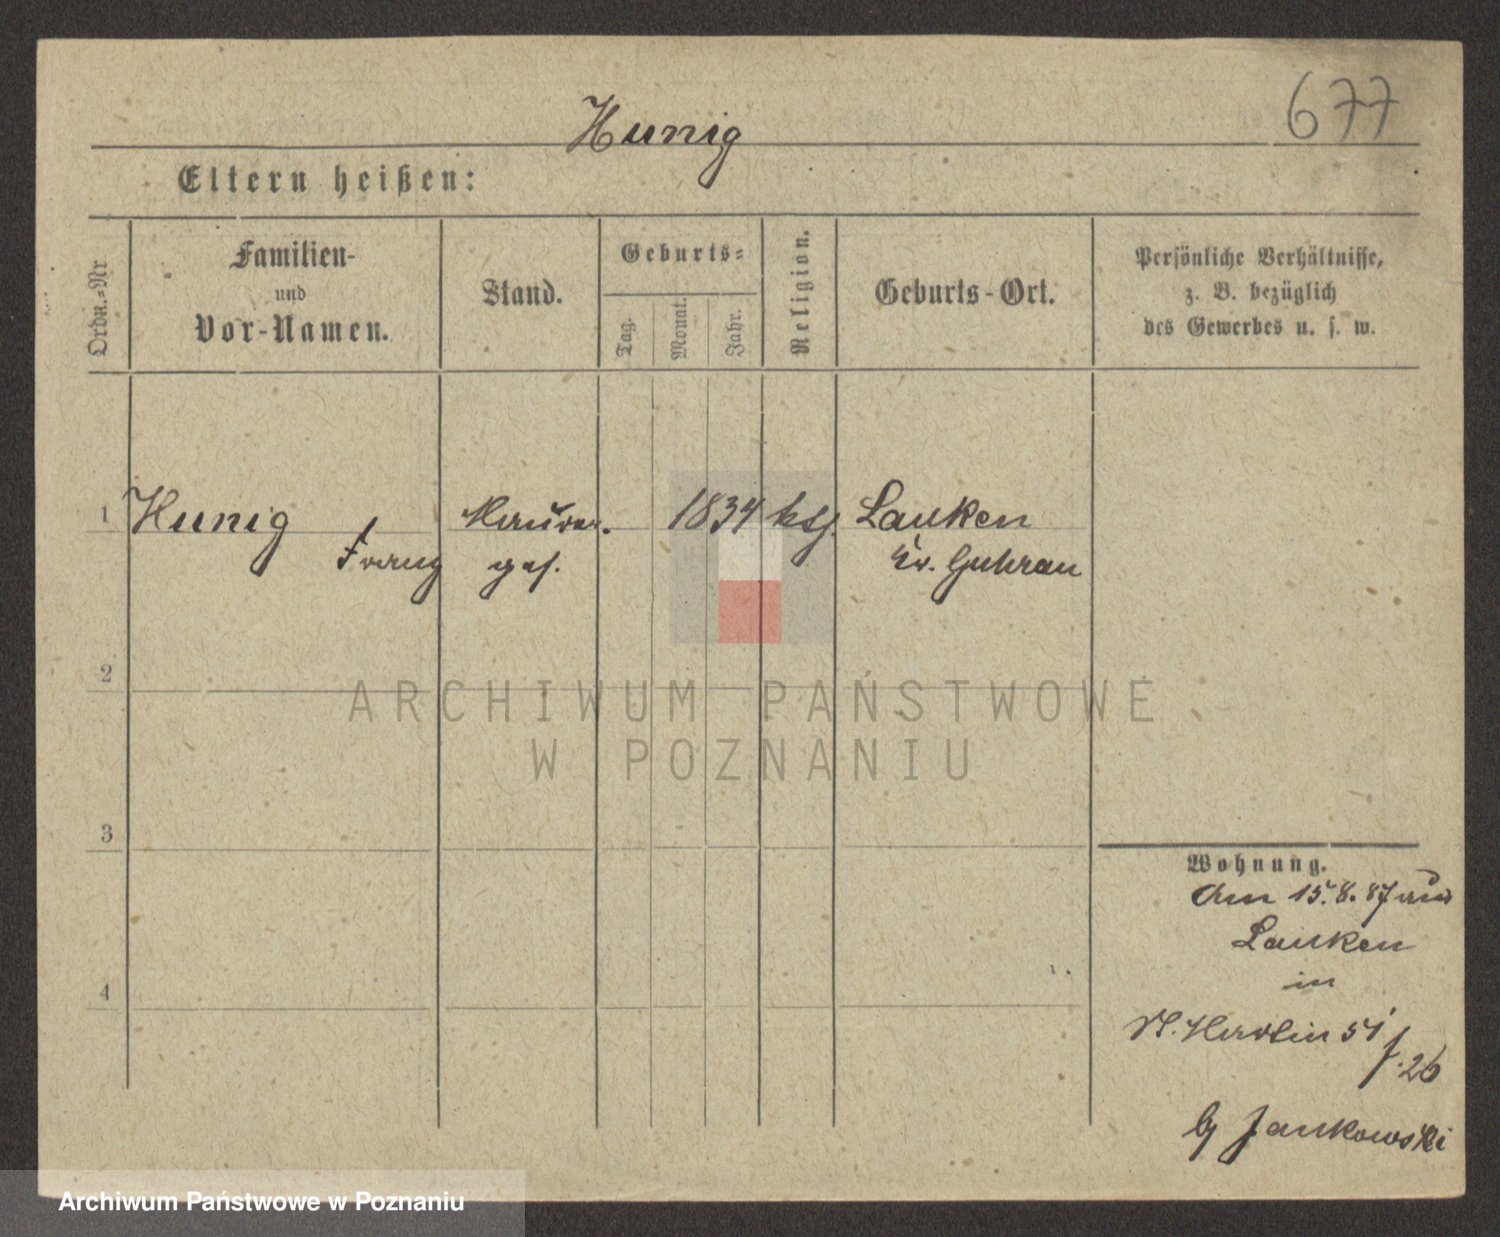 677
Hunig
Eltern heißen:
Ordn.=Nr
Familien-
und
Vor-Namen.
Stand.
Geburts=
Tag.
Monat.
Jahr.
Religion.
Geburts-Ort.
Persönliche Verhältnisse,
z. B. bezüglich
des Gewerbes u. s. w.
1 Hunig Maurer. 1834 ktg. Lauken
Franz ges. Kr. Guhrau
2
ARCHIWUM PAŃSTWOWE
W POZNANIU
3
Wohnung.
Am 15.8.87 aus
Lauken
in
4
St. Martin 51
f. 26
by Jankowski
Archiwum Państwowe w Poznaniu